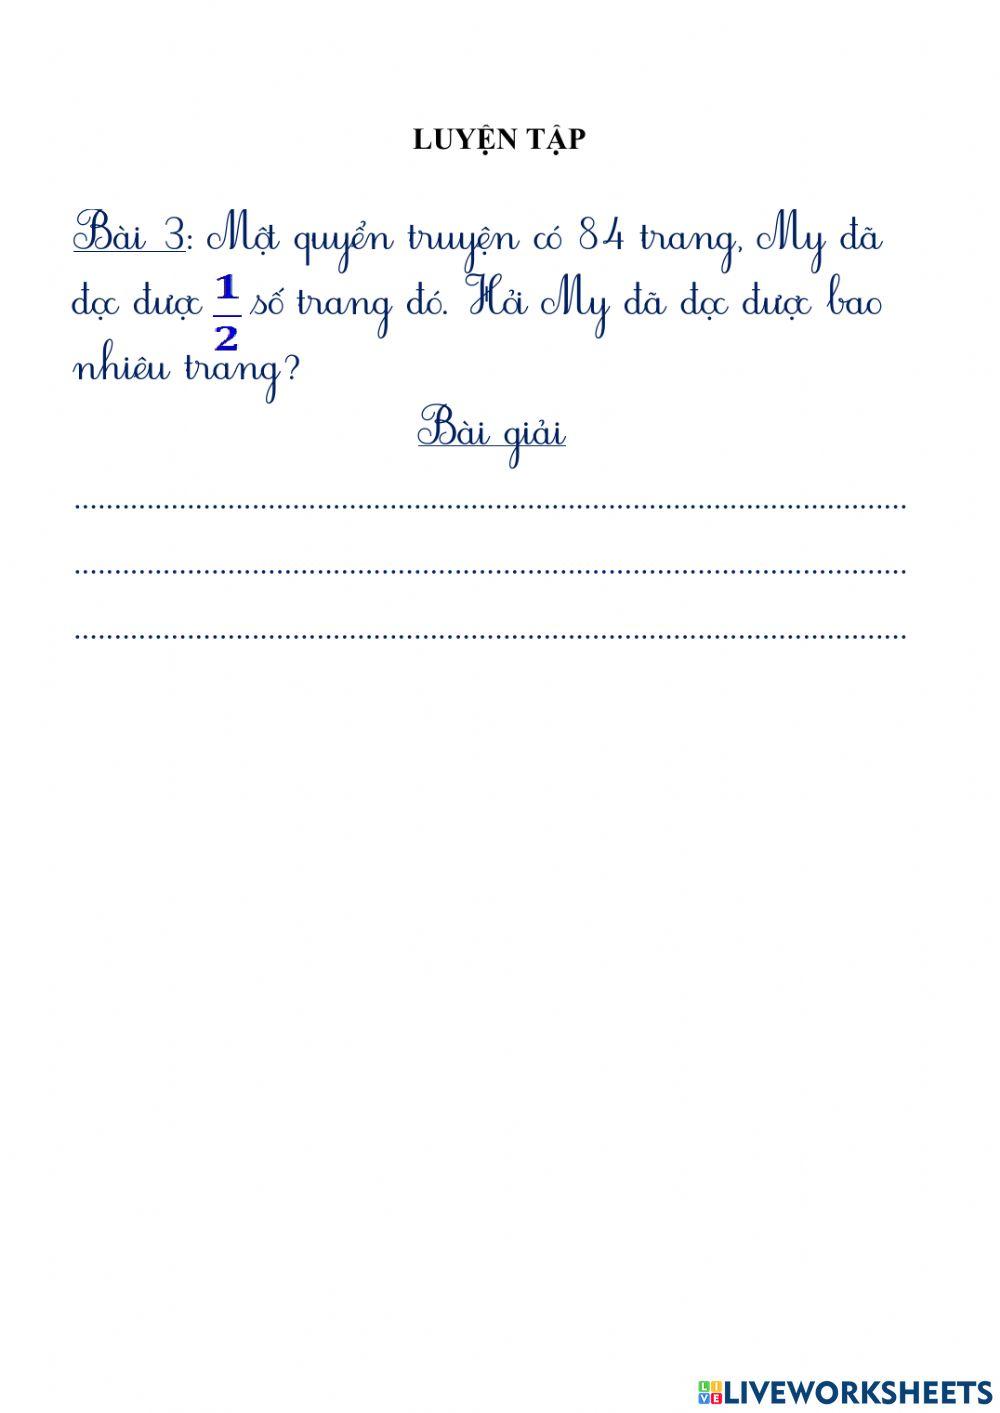 LUYỆN TẬP
Bài 3: Một quyển truyện có 84 trang, My đã
đọc được 1/2 số trang đó. Hỏi My đã đọc được bao
nhiêu trang?
Bài giải
........................................................................................................
........................................................................................................
........................................................................................................
LIVE LIVEWORKSHEETS